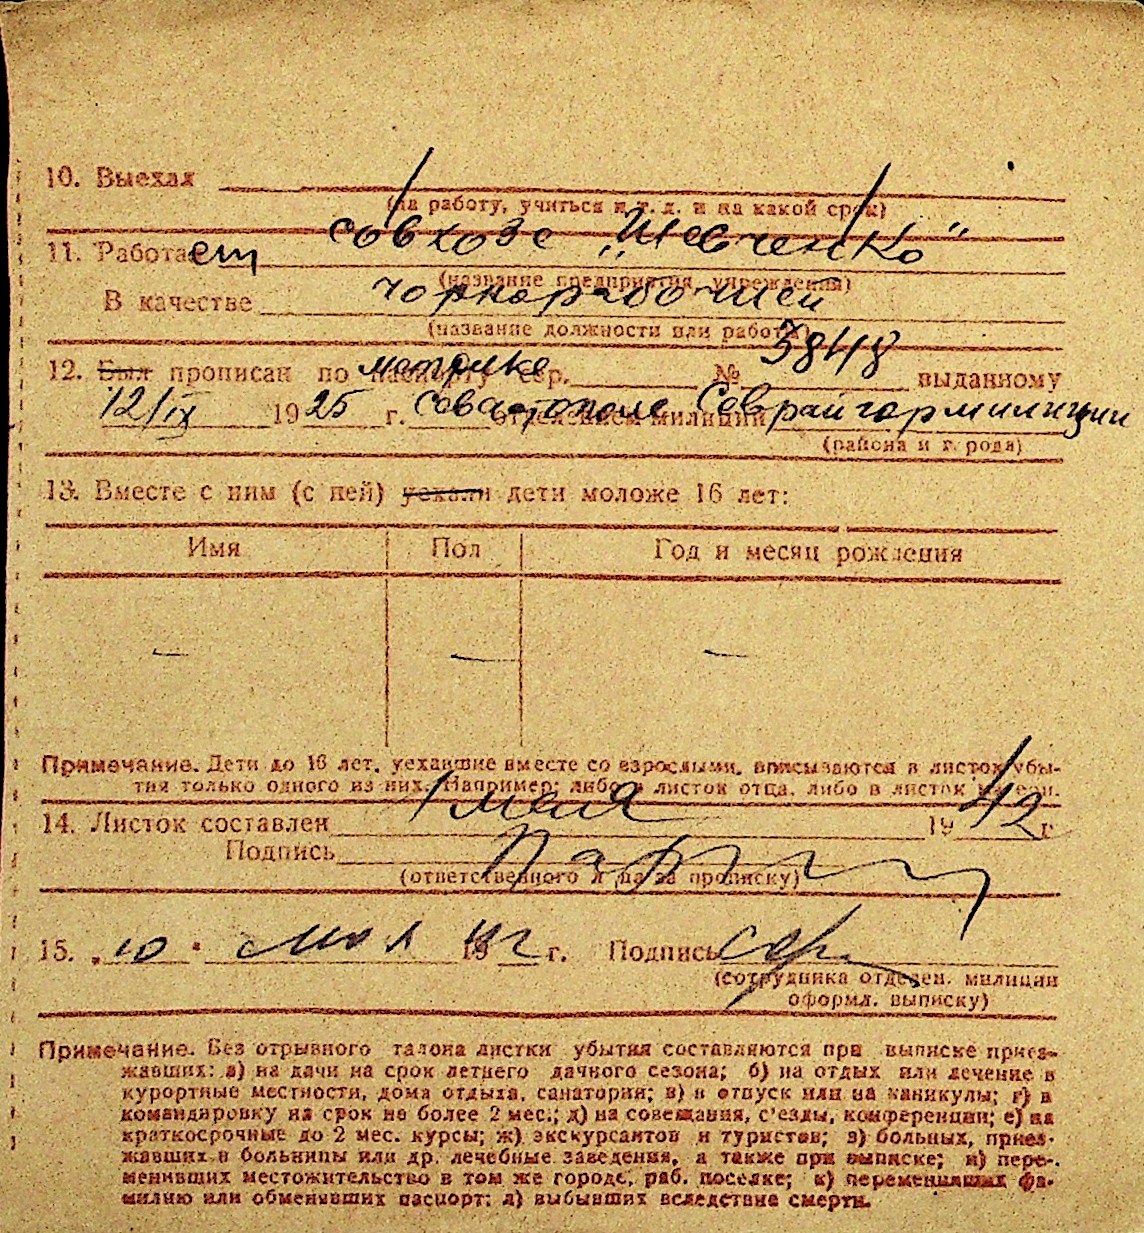 10. Выехал
(на работу, учиться и т. д. и на какой срок)
совхозе „Шевченко"
11. Работает
(название предприятия, учреждения)
чорнорабочей
В качестве
(название должности или работы)
метрике 3848
12. Был прописан по паспорту сер. № выданному
12/IX 1925 г. Севастополе отделением милиции Севрайгормилиции
(района и г. рода)
13. Вместе с ним (с ней) уехали дети моложе 16 лет:
Имя Пол Год и месяц рождения
— — —
Примечание. Дети до 16 лет, уехавшие вместе со взрослыми, вписываются в листок убы-
тия только одного из них. Например: либо в листок отца, либо в листок матери.
14. Листок составлен 1 мая 1942 г
Подпись
(ответственного лица за прописку)
15. „10" мая 1942 г. Подпись
(сотрудника отделен. милиции
оформл. выписку)
Примечание. Без отрывного талона листки убытия составляются при выписке приез-
жавших: а) на дачи на срок летнего дачного сезона; б) на отдых или лечение в
курортные местности, дома отдыха, санатории; в) в отпуск или на каникулы; г) в
командировку на срок не более 2 мес.; д) на совещания, с'езды, конференции; е) на
краткосрочные до 2 мес. курсы; ж) экскурсантов и туристов; з) больных, приез-
жавших в больницы или др. лечебные заведения, а также при выписке; и) пере-
менивших местожительство в том же городе, раб. поселке; к) переменивших фа-
милию или обменивших паспорт; л) выбывших вследствие смерти.